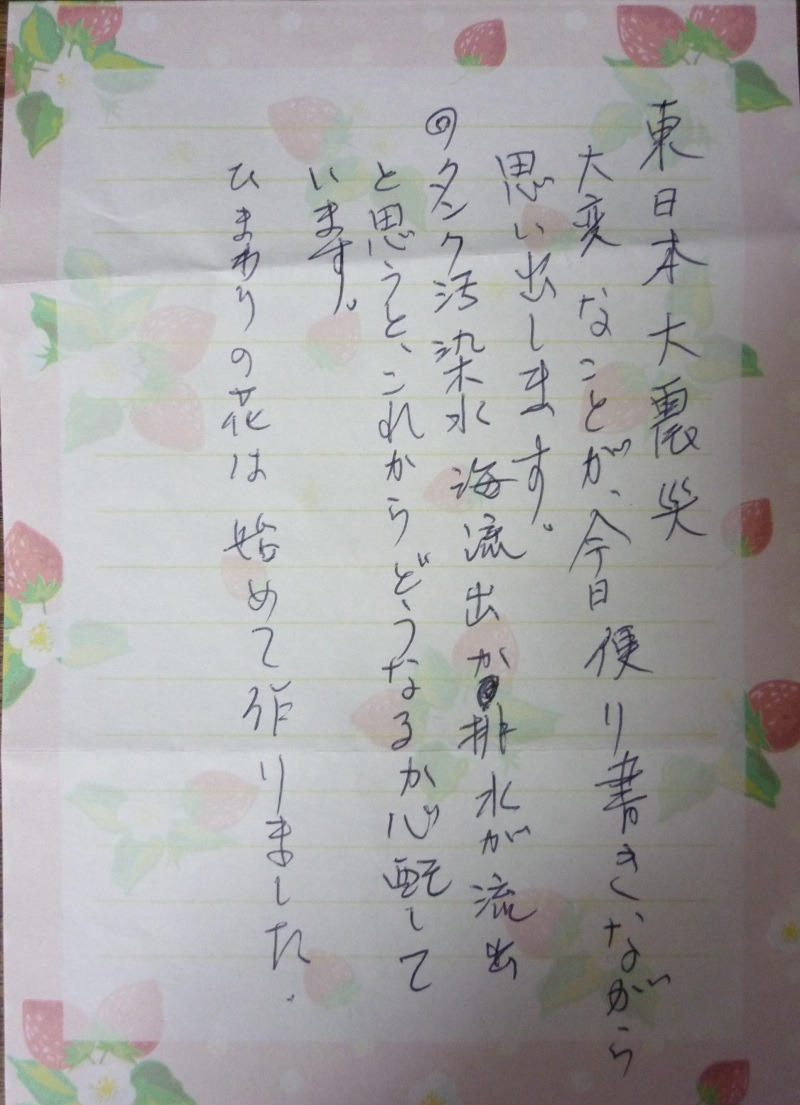 東日本大震災
大変なことが、今日便り書きながら
思い出します。
◎タンク汚染水海流出が排水が流出
と思うと、これからどうなるか心配して
います。
ひまわりの花は始めて作りました.